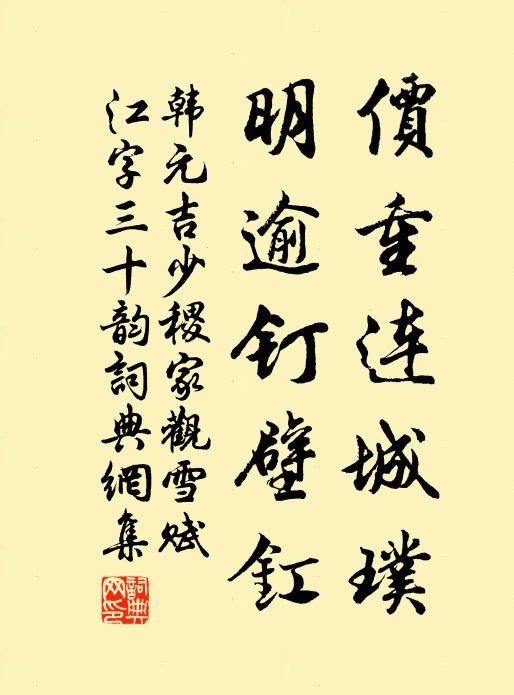 價重連城璞
明逾釘壁釭
韩元吉少稷家觀雪赋
江字三十韵詞典網集
詞典網印